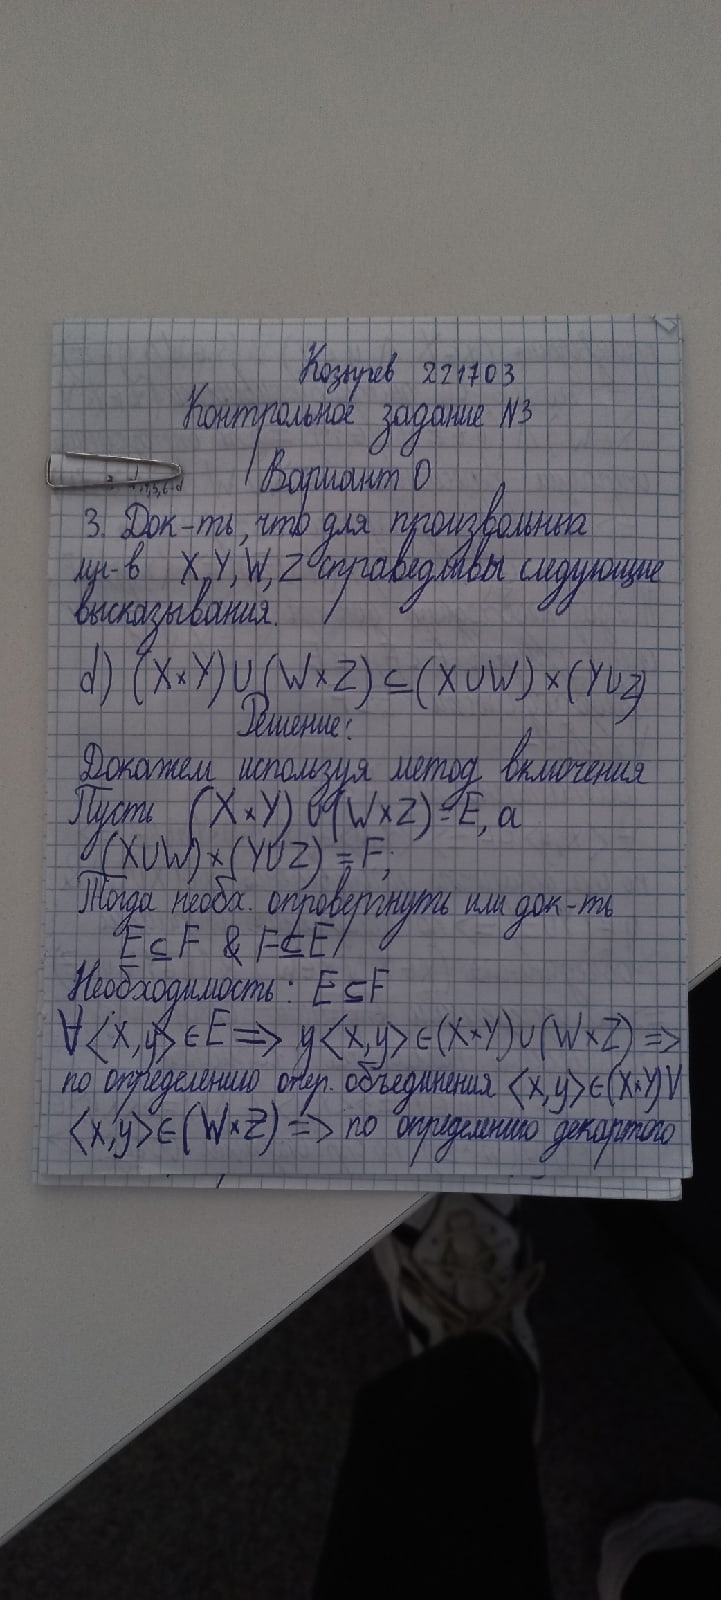 Козырев 221703
Контрольное задание N3
Вариант 0
3. Док-ть, что для произвольных
мн-в X, Y, W, Z справедливы следующие
высказывания.
d) (X×Y)∪(W×Z)⊆(X∪W)×(Y∪Z)
Решение:
Докажем используя метод включения
Пусть (X×Y)∪(W×Z)=E, а
(X∪W)×(Y∪Z)=F;
Тогда необх. опровергнуть или док-ть
E⊆F & F⊆E
Необходимость: E⊆F
∀<x,y>∈E=> y<x,y>∈(X×Y)∪(W×Z)=>
по определению опер. объединения <x,y>∈(X×Y)V
<x,y>∈(W×Z)=> по определению декартого